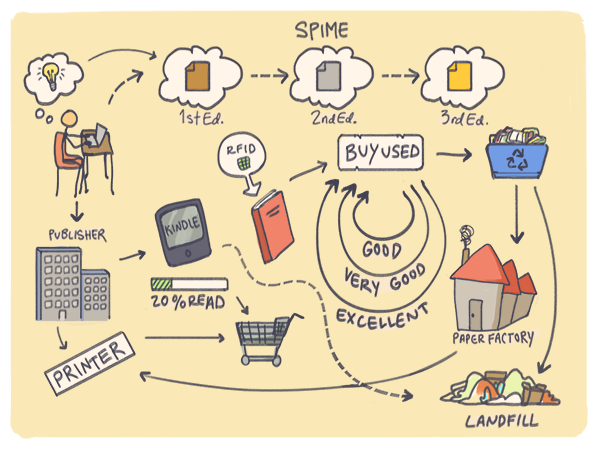 SPIME
1st Ed.
2nd Ed.
3rd Ed.
RFID
BUY USED
PUBLISHER
KINDLE
GOOD
VERY GOOD
EXCELLENT
20% READ
PRINTER
PAPER FACTORY
LANDFILL